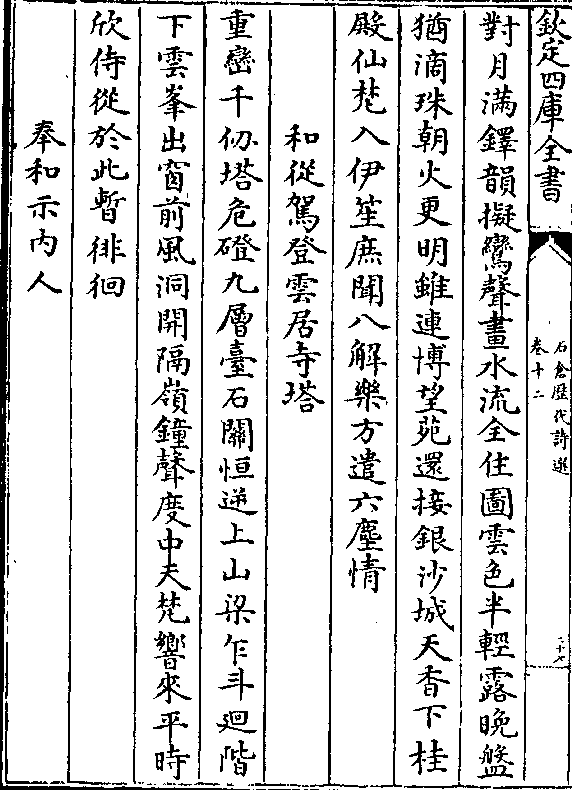 欽定四庫全書
石倉歴代詩選
卷十二
二十七
對月滿鐸韻擬鸞聲畫水流全住圖雲色半輕露晩盤
猶滴珠朝火更明雖連博望苑還接銀沙城天香下桂
殿仙梵入伊笙庶聞八解樂方遣六塵情
和從駕登雲居寺塔
重巒千仞塔危磴九層臺石闗恒逆上山梁乍斗迴階
下雲峯出窗前風洞開隔嶺鐘聲度中天梵響來平時
欣侍從於此暫徘徊
奉和示内人